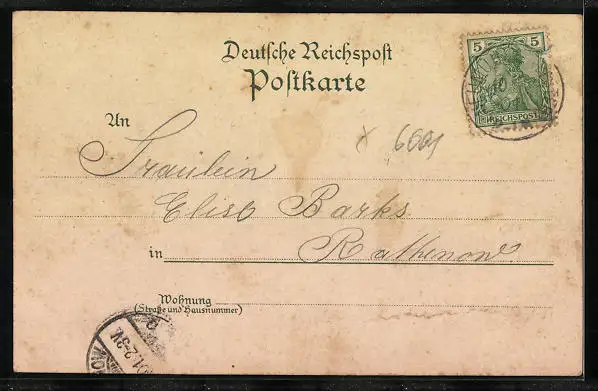 Deutsche Reichspost
Postkarte
5 5
REICHSPOST
An
x 6601
Fräulein
Elise Barks
in Rathenow
Wohnung
(Straße und Hausnummer)
01.2-3V.